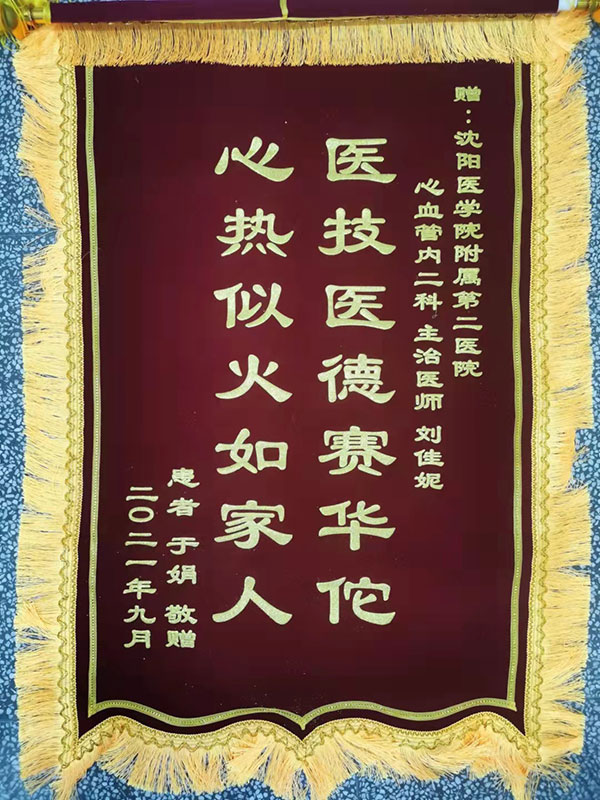 赠：沈阳医学院附属第二医院
心血管内二科 主治医师 刘佳妮
医技医德赛华佗
心热似火如家人
患者 于娟 敬赠
二〇二一年九月